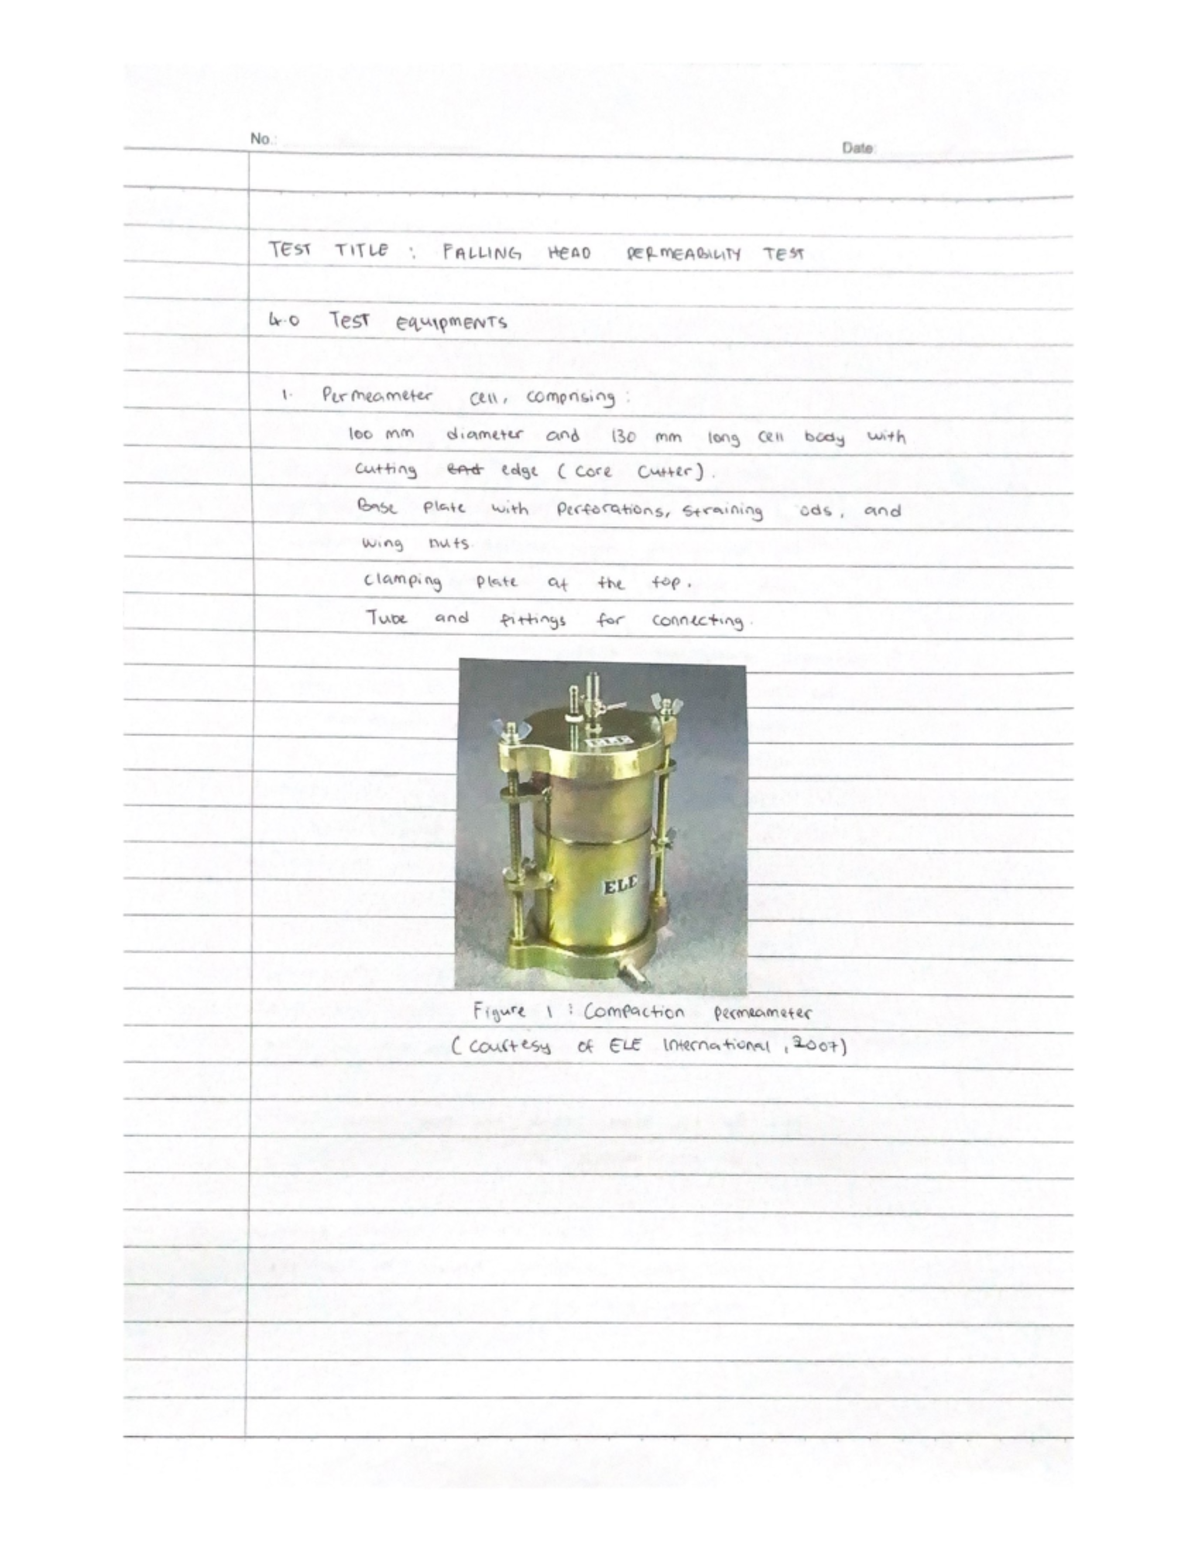 No.:
Date:
TEST TITLE : FALLING HEAD PERMEABILITY TEST
4.0 Test equipments
1. Permeameter cell, comprising :
100 mm diameter and 130 mm long cell body with
cutting end edge (core cutter).
Base plate with perforations, straining ods, and
wing nuts.
clamping plate at the top.
Tube and fittings for connecting.
ELE
ELE
Figure 1 : Compaction permeameter
(courtesy of ELE International, 2007)